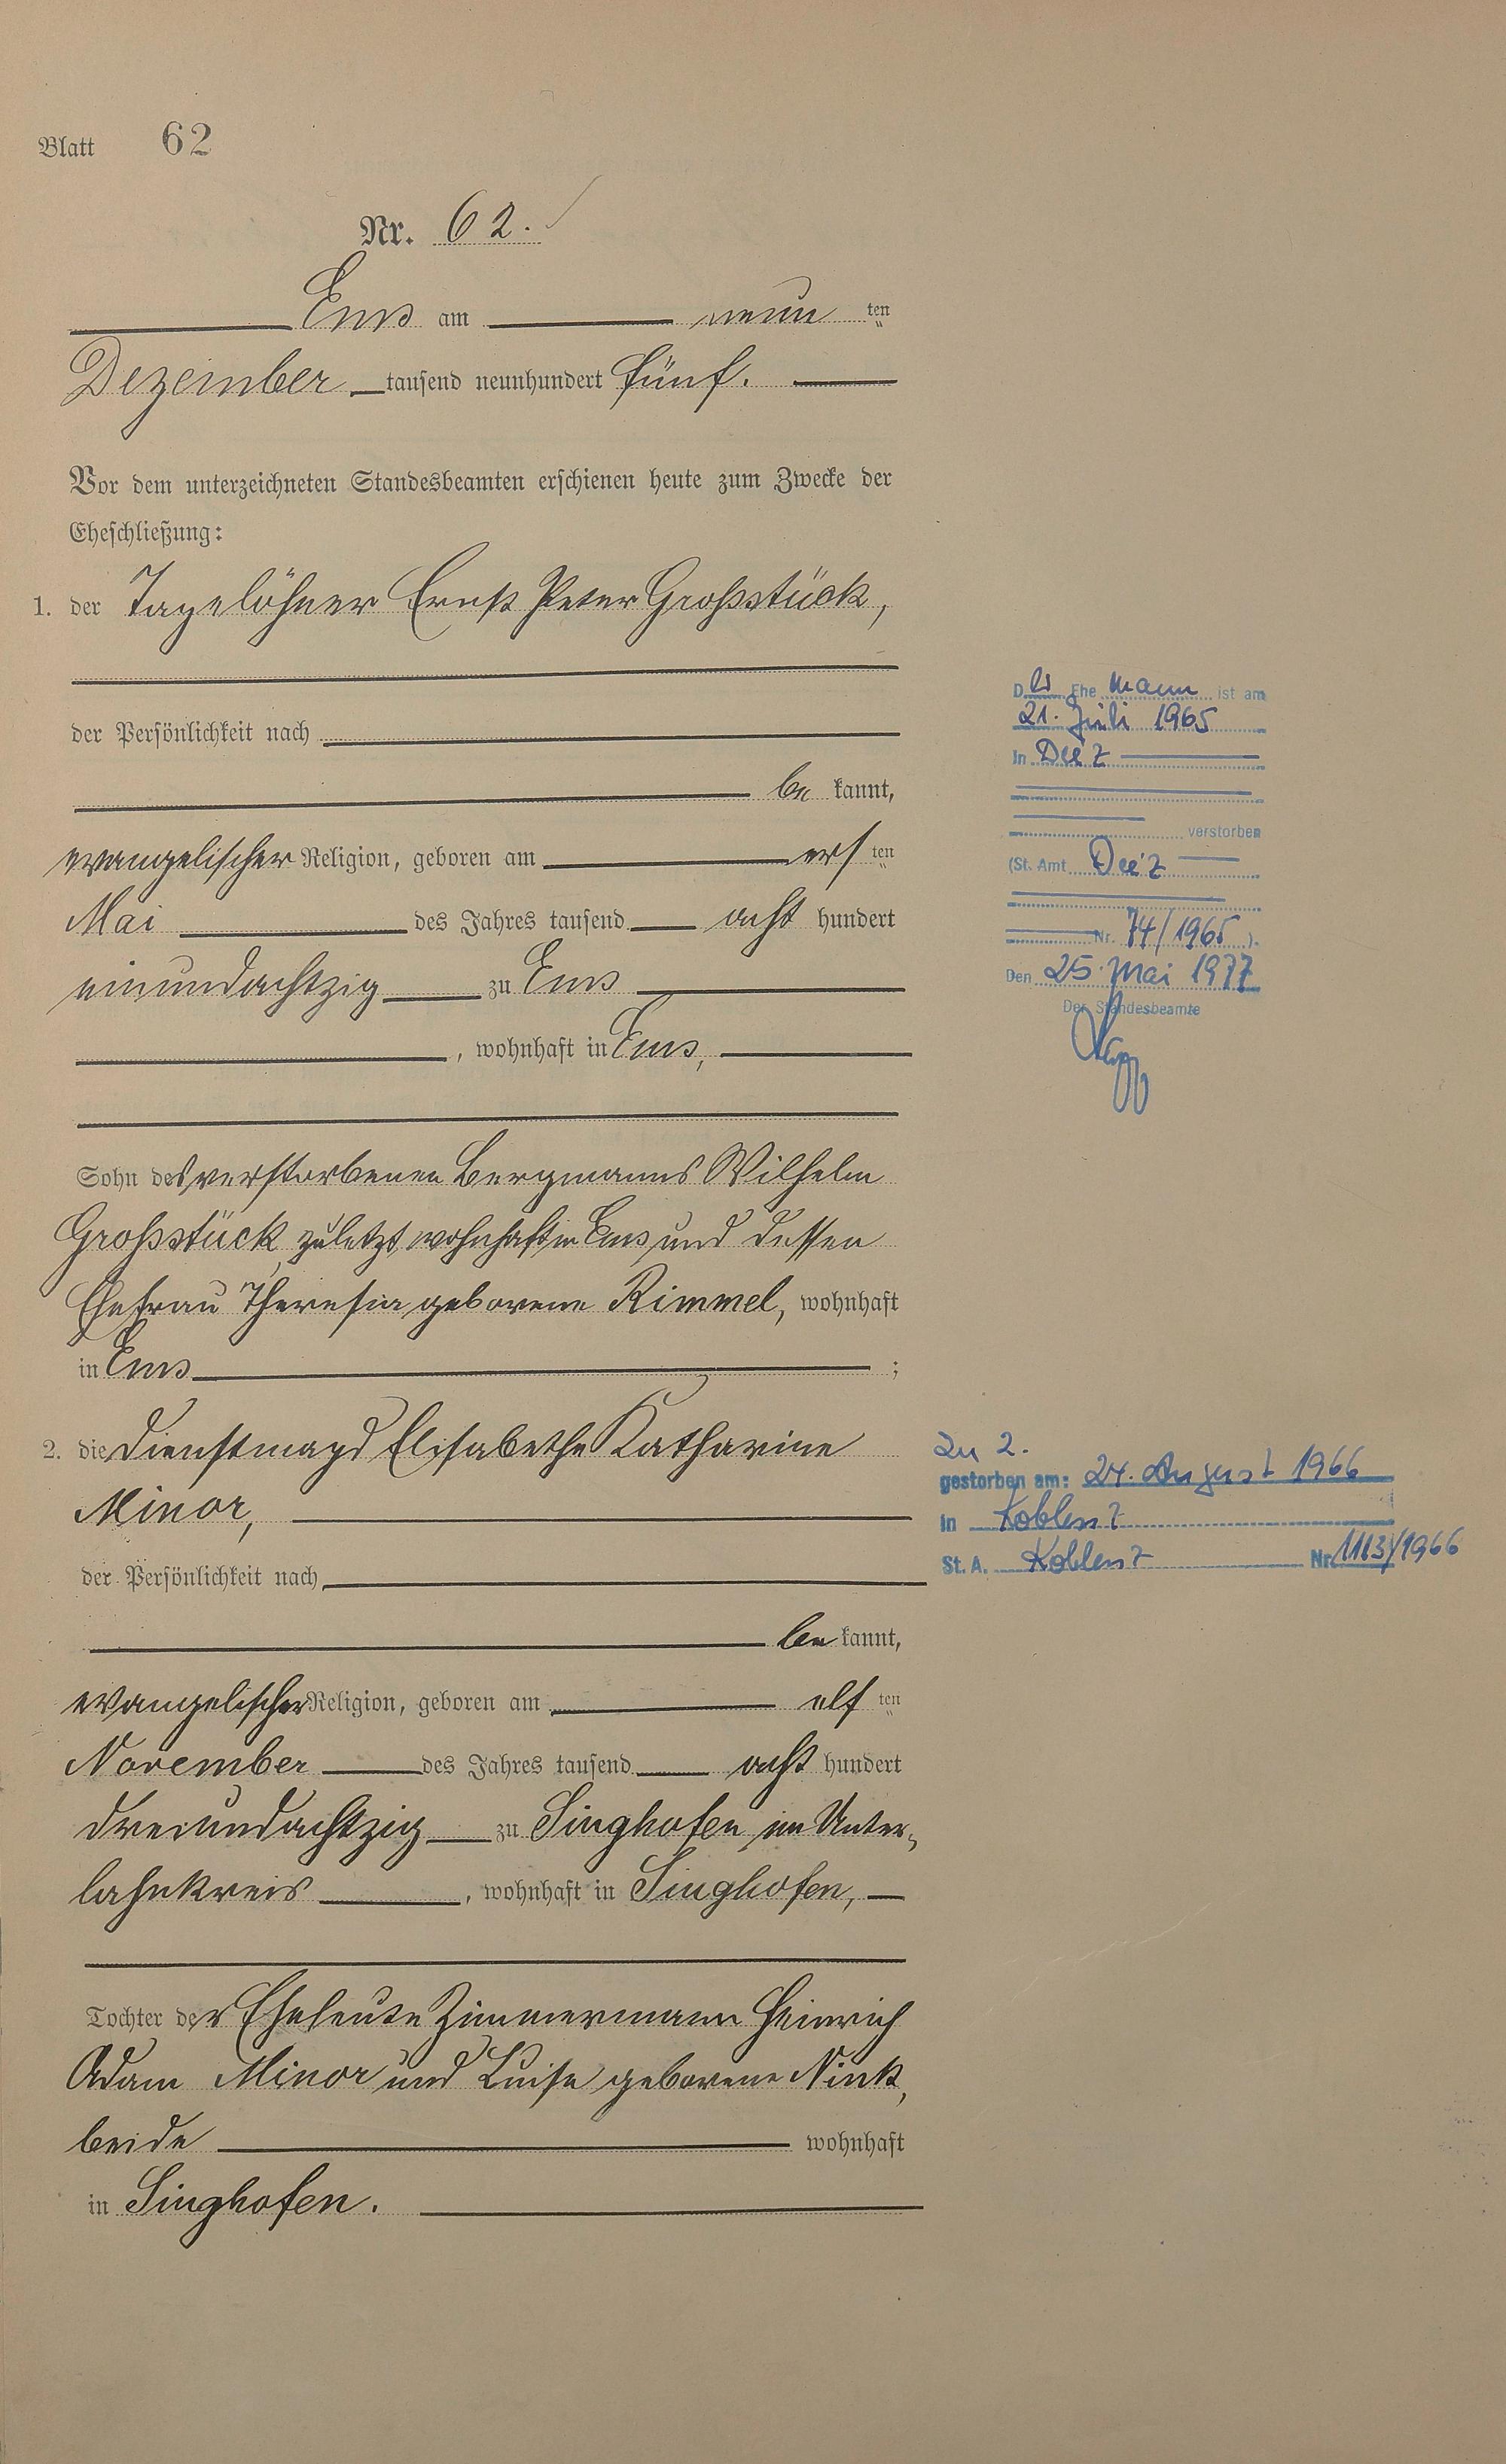 Blatt 62
Nr. 62.
Ems am neun ten
Dezember tausend neunhundert fünf.
Vor dem unterzeichneten Standesbeamten erschienen heute zum Zwecke der
Eheschließung:
1. der Tagelöhner Ernst Peter Großstück,
der Persönlichkeit nach
be kannt,
evangelischer Religion, geboren am ers ten
Mai des Jahres tausend acht hundert
einundachtzig zu Ems
, wohnhaft in Ems,
Sohn des verstorbenen Bergmanns Wilhelm
Großstück, zuletzt wohnhaft in Ems und dessen
Ehefrau Theresia geborene Rimmel, wohnhaft
in Ems ;
2. die Dienstmagd Elisabethe Katharine
Minor,
der Persönlichkeit nach
be kannt,
evangelischer Religion, geboren am elf ten
November des Jahres tausend acht hundert
dreiundachtzig zu Singhofen im Unter-
lahnkreis , wohnhaft in Singhofen,
Tochter der Eheleute Zimmermann Heinrich
Adam Minor und Luise geborene Nink,
beide wohnhaft
in Singhofen.
Der Ehe mann ist am
21. Juli 1965
in Diez
verstorben
(St. Amt Diez
Nr. 74/1965 ).
Den 25. Mai 1977
Der Standesbeamte
Zu 2.
gestorben am: 24. August 1966
in Koblenz
St. A. Koblenz Nr. 1113/1966